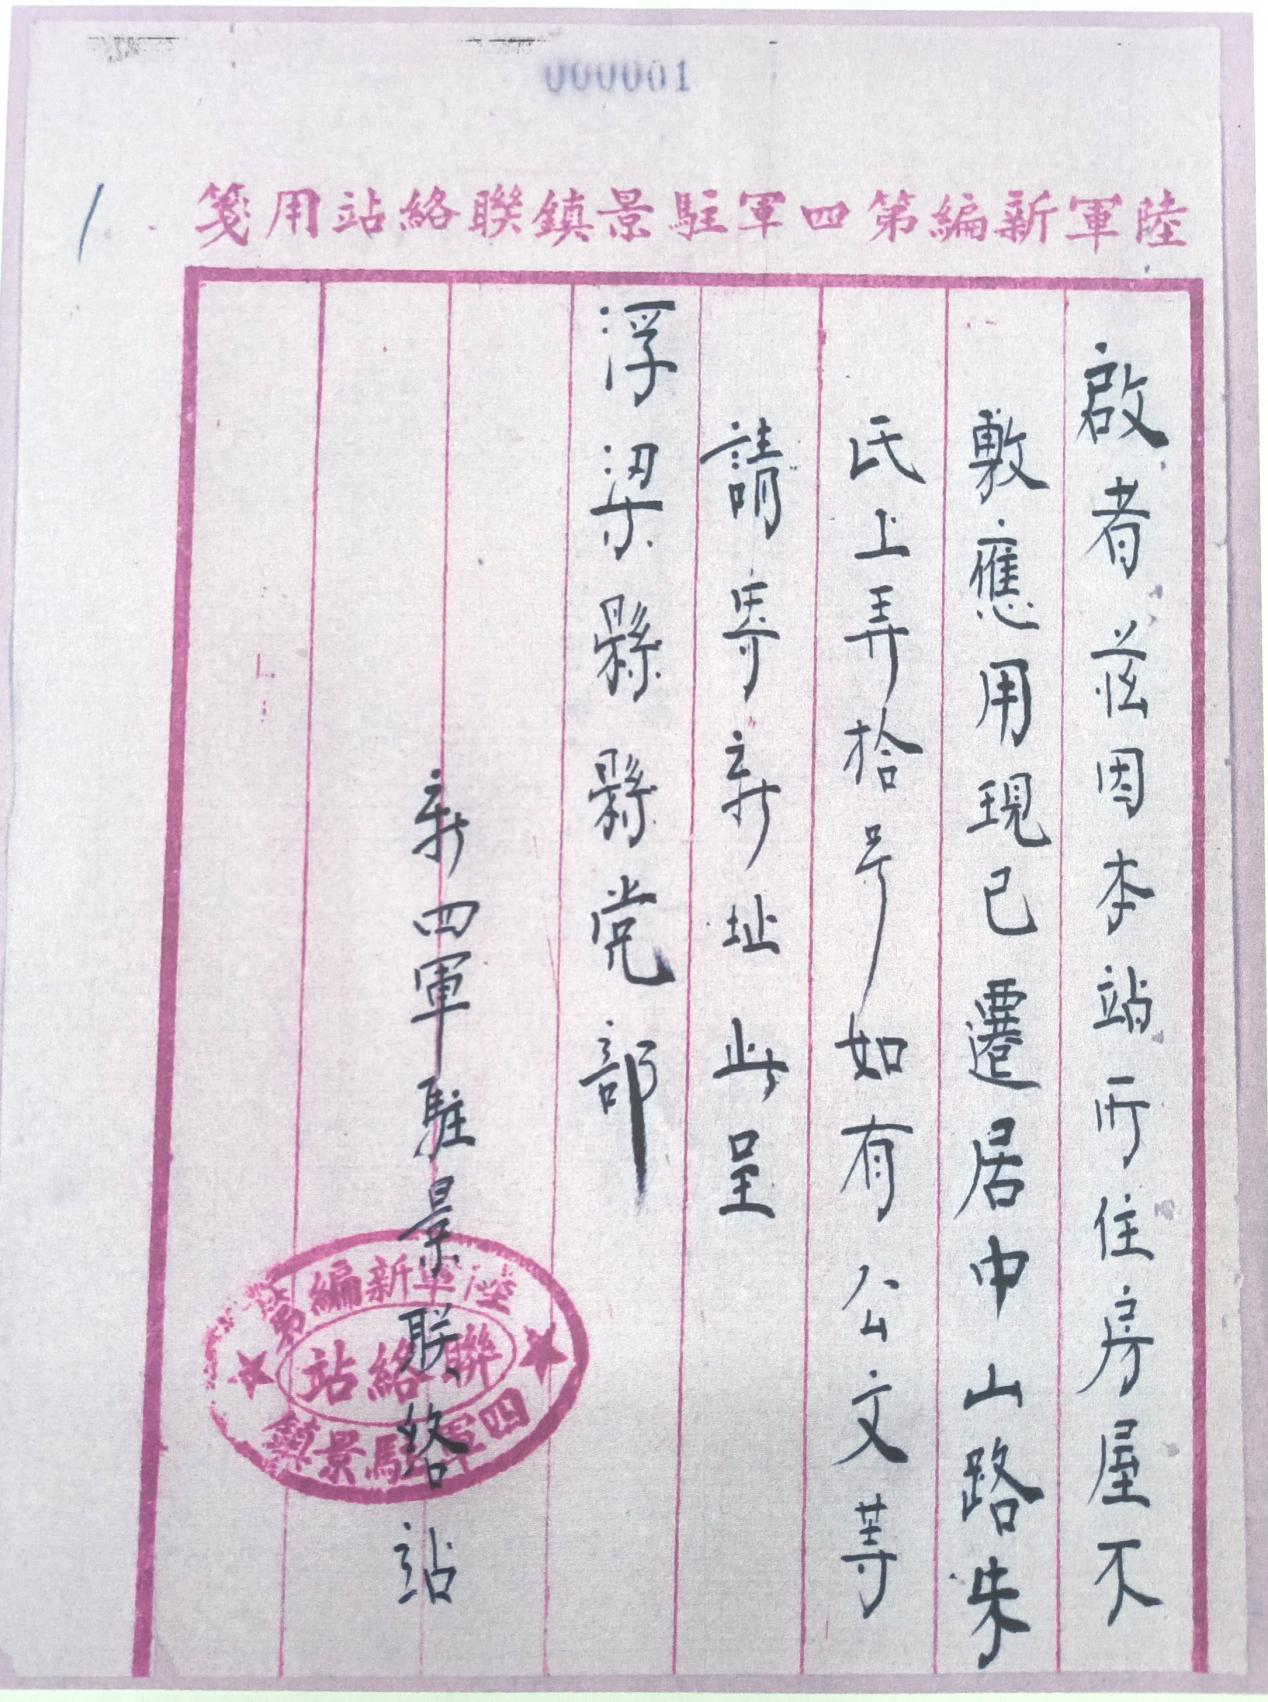 000001
陸軍新編第四軍駐景鎮聯絡站用箋
1
啟者茲因本站所住房屋不
敷應用現已遷居中山路朱
氏上弄拾号如有公文等
請寄新址此呈
浮梁縣縣党部
新四軍駐景联络站
陸軍新編第
聯絡站
四軍駐景鎮